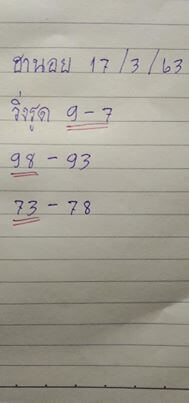 ฮานอย 17/3/63
วิ่งรูด 9-7
98-93
73-78